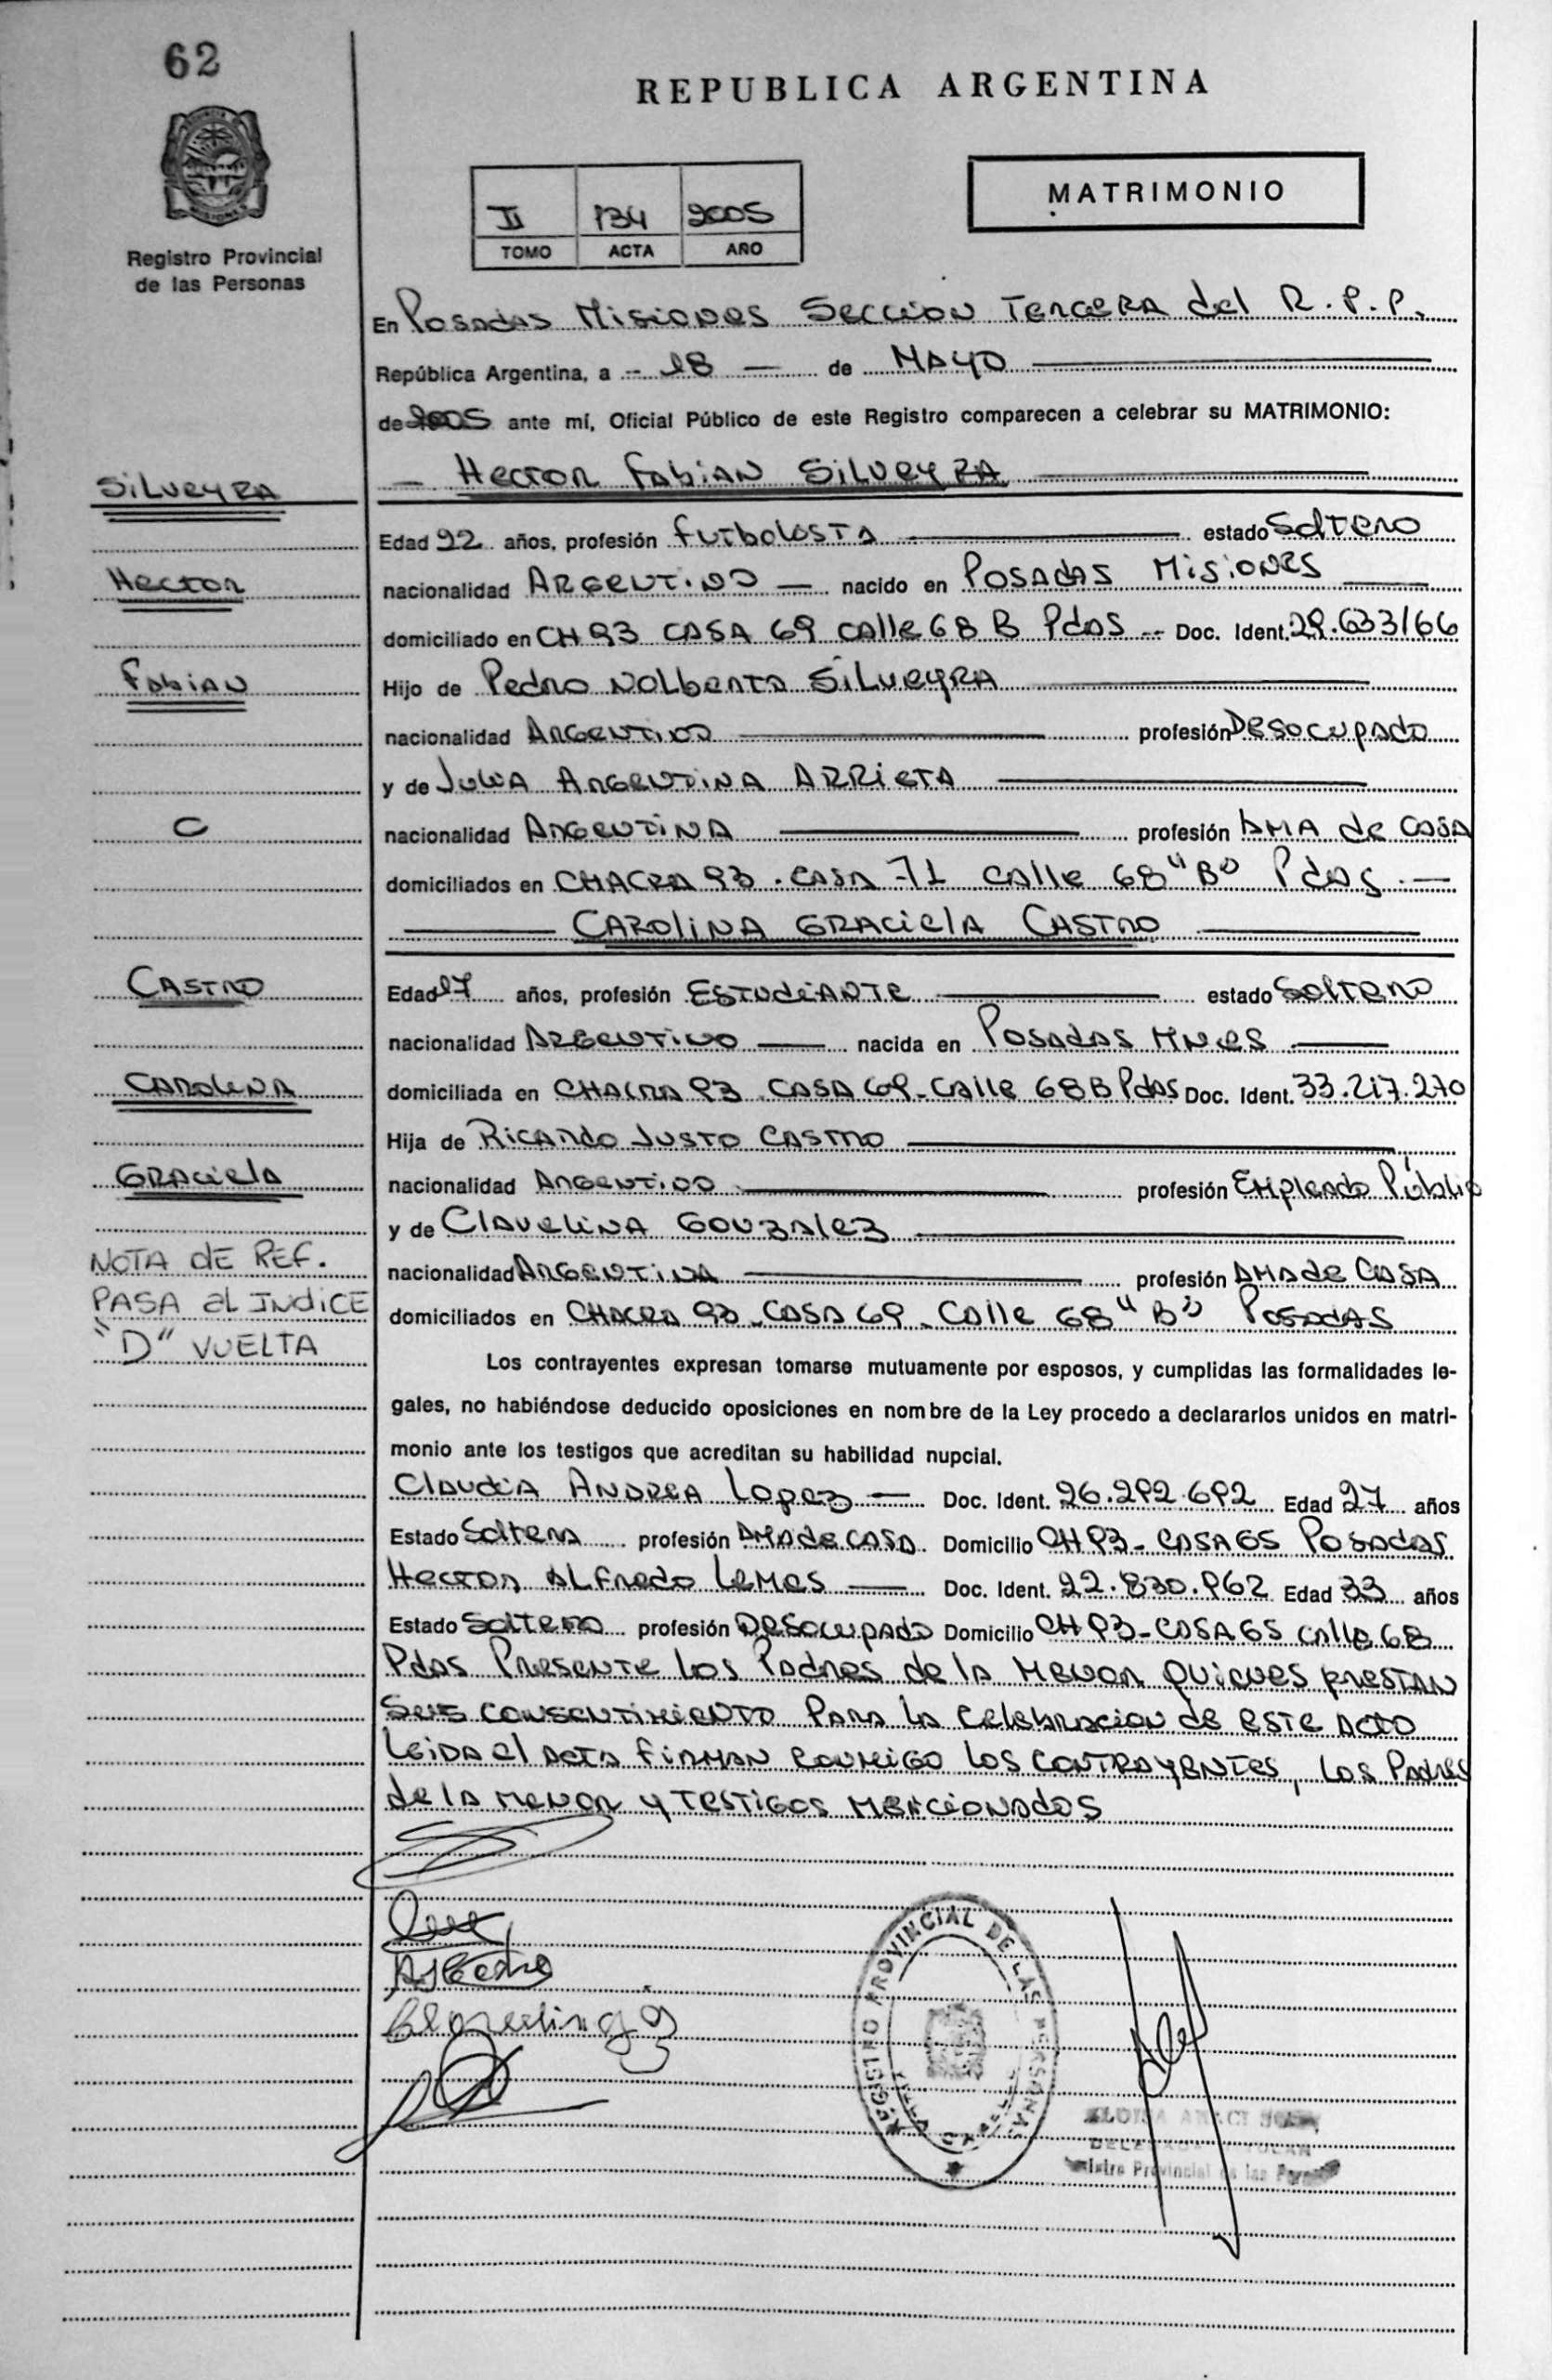 62
REPUBLICA ARGENTINA
MATRIMONIO
II 134 2005
TOMO ACTA AÑO
Registro Provincial
de las Personas
En Posadas Misiones Seccion Tercera del R.P.P.
República Argentina, a - 18 — de Mayo
de 2005 ante mí, Oficial Público de este Registro comparecen a celebrar su MATRIMONIO:
Silveyra
— Hector Fabian Silveyra
Edad 22 años, profesión Futbolista estado Soltero
Hector
nacionalidad Argentino — nacido en Posadas Misiones
domiciliado en CH 93 CASA 69 Calle 68 B Pdas -- Doc. Ident. 29.633166
Fabian
Hijo de Pedro Nolberto Silveyra
nacionalidad Argentino profesión Desocupado
y de Julia Argentina Arrieta
C
nacionalidad Argentina profesión Ama de Casa
domiciliados en Chacra 93 . Casa 71 Calle 68 "B" Pdas . —
Carolina Graciela Castro
Castro
Edad 17 años, profesión Estudiante estado Soltero
nacionalidad Argentino — nacida en Posadas Mnes
Carolina
domiciliada en Chacra 93 . Casa 69 - Calle 68 B Pdas Doc. Ident. 33.217.270
Hija de Ricardo Justo Castro
Graciela
nacionalidad Argentino profesión Empleado Público
y de Clavelina Gonzalez
NOTA dE REF.
nacionalidad Argentina profesión Ama de Casa
PASA al INdiCE
domiciliados en Chacra 93 - Casa 69 - Calle 68 "B" Posadas
"D" VUELTA
Los contrayentes expresan tomarse mutuamente por esposos, y cumplidas las formalidades le-
gales, no habiéndose deducido oposiciones en nombre de la Ley procedo a declararlos unidos en matri-
monio ante los testigos que acreditan su habilidad nupcial.
Claudia Andrea Lopez — Doc. Ident. 26.292.692 Edad 27 años
Estado Soltera profesión Ama de casa Domicilio CH 93 - Casa 65 Posadas
Hector Alfredo Lemes — Doc. Ident. 22.830.962 Edad 33 años
Estado Soltero profesión Desocupado Domicilio CH 93 - Casa 65 Calle 68
Pdas Presente los Padres de la Menor quienes prestan
Seis consentimiento Para la Celebracion de este Acto
Leida el Acta Firman conmigo los contrayentes, los Padres
de la menor y testigos mencionados
REGISTRO PROVINCIAL DE LAS PERSONAS